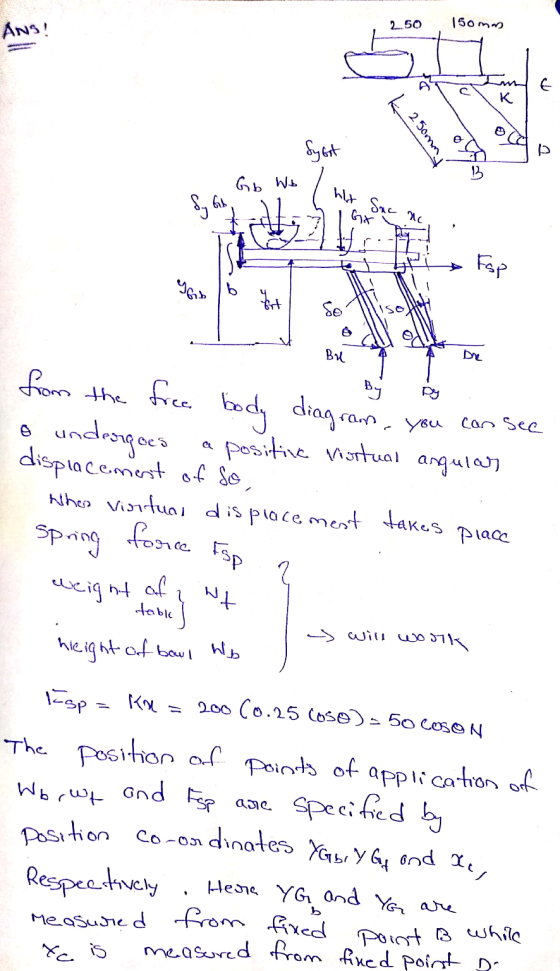 ANS!
250 150mm
A C K E
250mm
θ θ D
B
δyGt
Gb Wb Wt δxc xc
δyGb Gt
Fsp
yGb b yGt δθ δθ
θ θ
Bx Dx
By Dy
from the free body diagram, you can see
θ undergoes a positive virtual angular
displacement of δθ,
When virtual displacement takes place
Spring force Fsp
weight of table } Wt
weight of bowl Wb
→ will work
Fsp = Kx = 200 (0.25 cosθ) = 50 cosθ N
The position of points of application of
Wb, wt and Fsp are specified by
position co-ordinates YGb, YGt and xc,
Respectively. Here YGb and YG are
measured from fixed point B while
xc is measured from fixed point D.